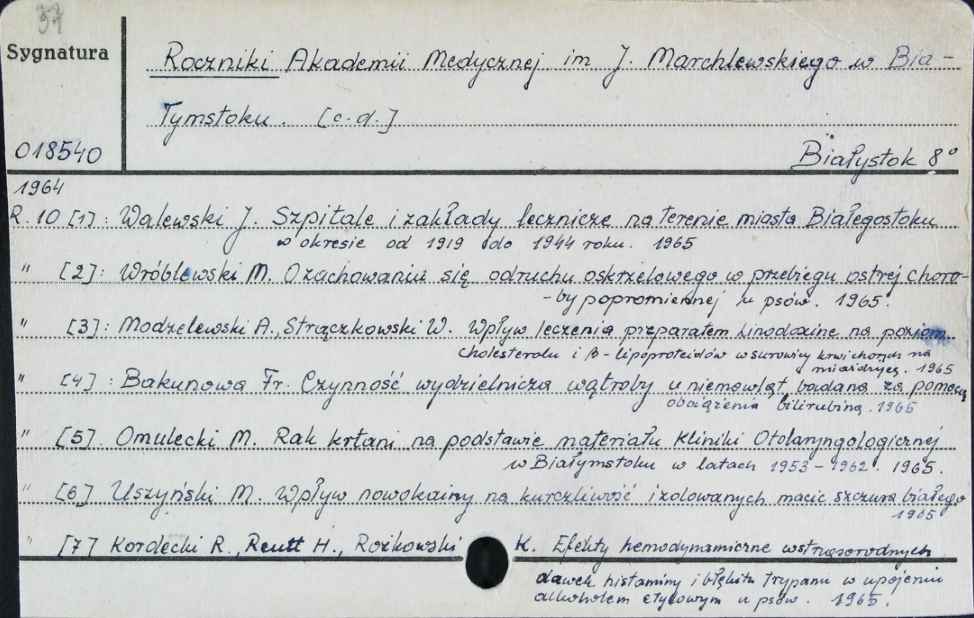 37
Sygnatura
Roczniki Akademii Medycznej im J. Marchlewskiego w Bia-
łymstoku. [c.d.]
018540
Białystok 8°
1964
R. 10 [1]: Walewski J. Szpitale i zakłady lecznicze na terenie miasta Białegostoku
w okresie od 1919 do 1944 roku. 1965
" [2]: Wróblewski M. O zachowaniu się odruchu oskrzelowego w przebiegu ostrej choro-
-by popromiennej u psów. 1965.
" [3]: Modzelewski A., Strączkowski W. Wpływ leczenia preparatem Linodoxine na poziom
cholesterolu i β-lipoproteidów w surowicy krwi chorych na
miażdżycę. 1965
" [4]: Bakunowa Fr. Czynność wydzielnicza wątroby u niemowląt badana za pomocą
obciążenia bilirubiną. 1965
" [5]. Omulecki M. Rak krtani na podstawie materiału Kliniki Otolaryngologicznej
w Białymstoku w latach 1953-1962. 1965.
" [6] Uszyński M. Wpływ nowokainy na kurczliwość izolowanych macic szczura białego
1965
" [7] Kordecki R., Reutt H., Rożkowski K. Efekty hemodynamiczne wstrząsorodnych
dawek histaminy i błękitu trypanu w upojeniu
alkoholem etylowym u psów. 1965.